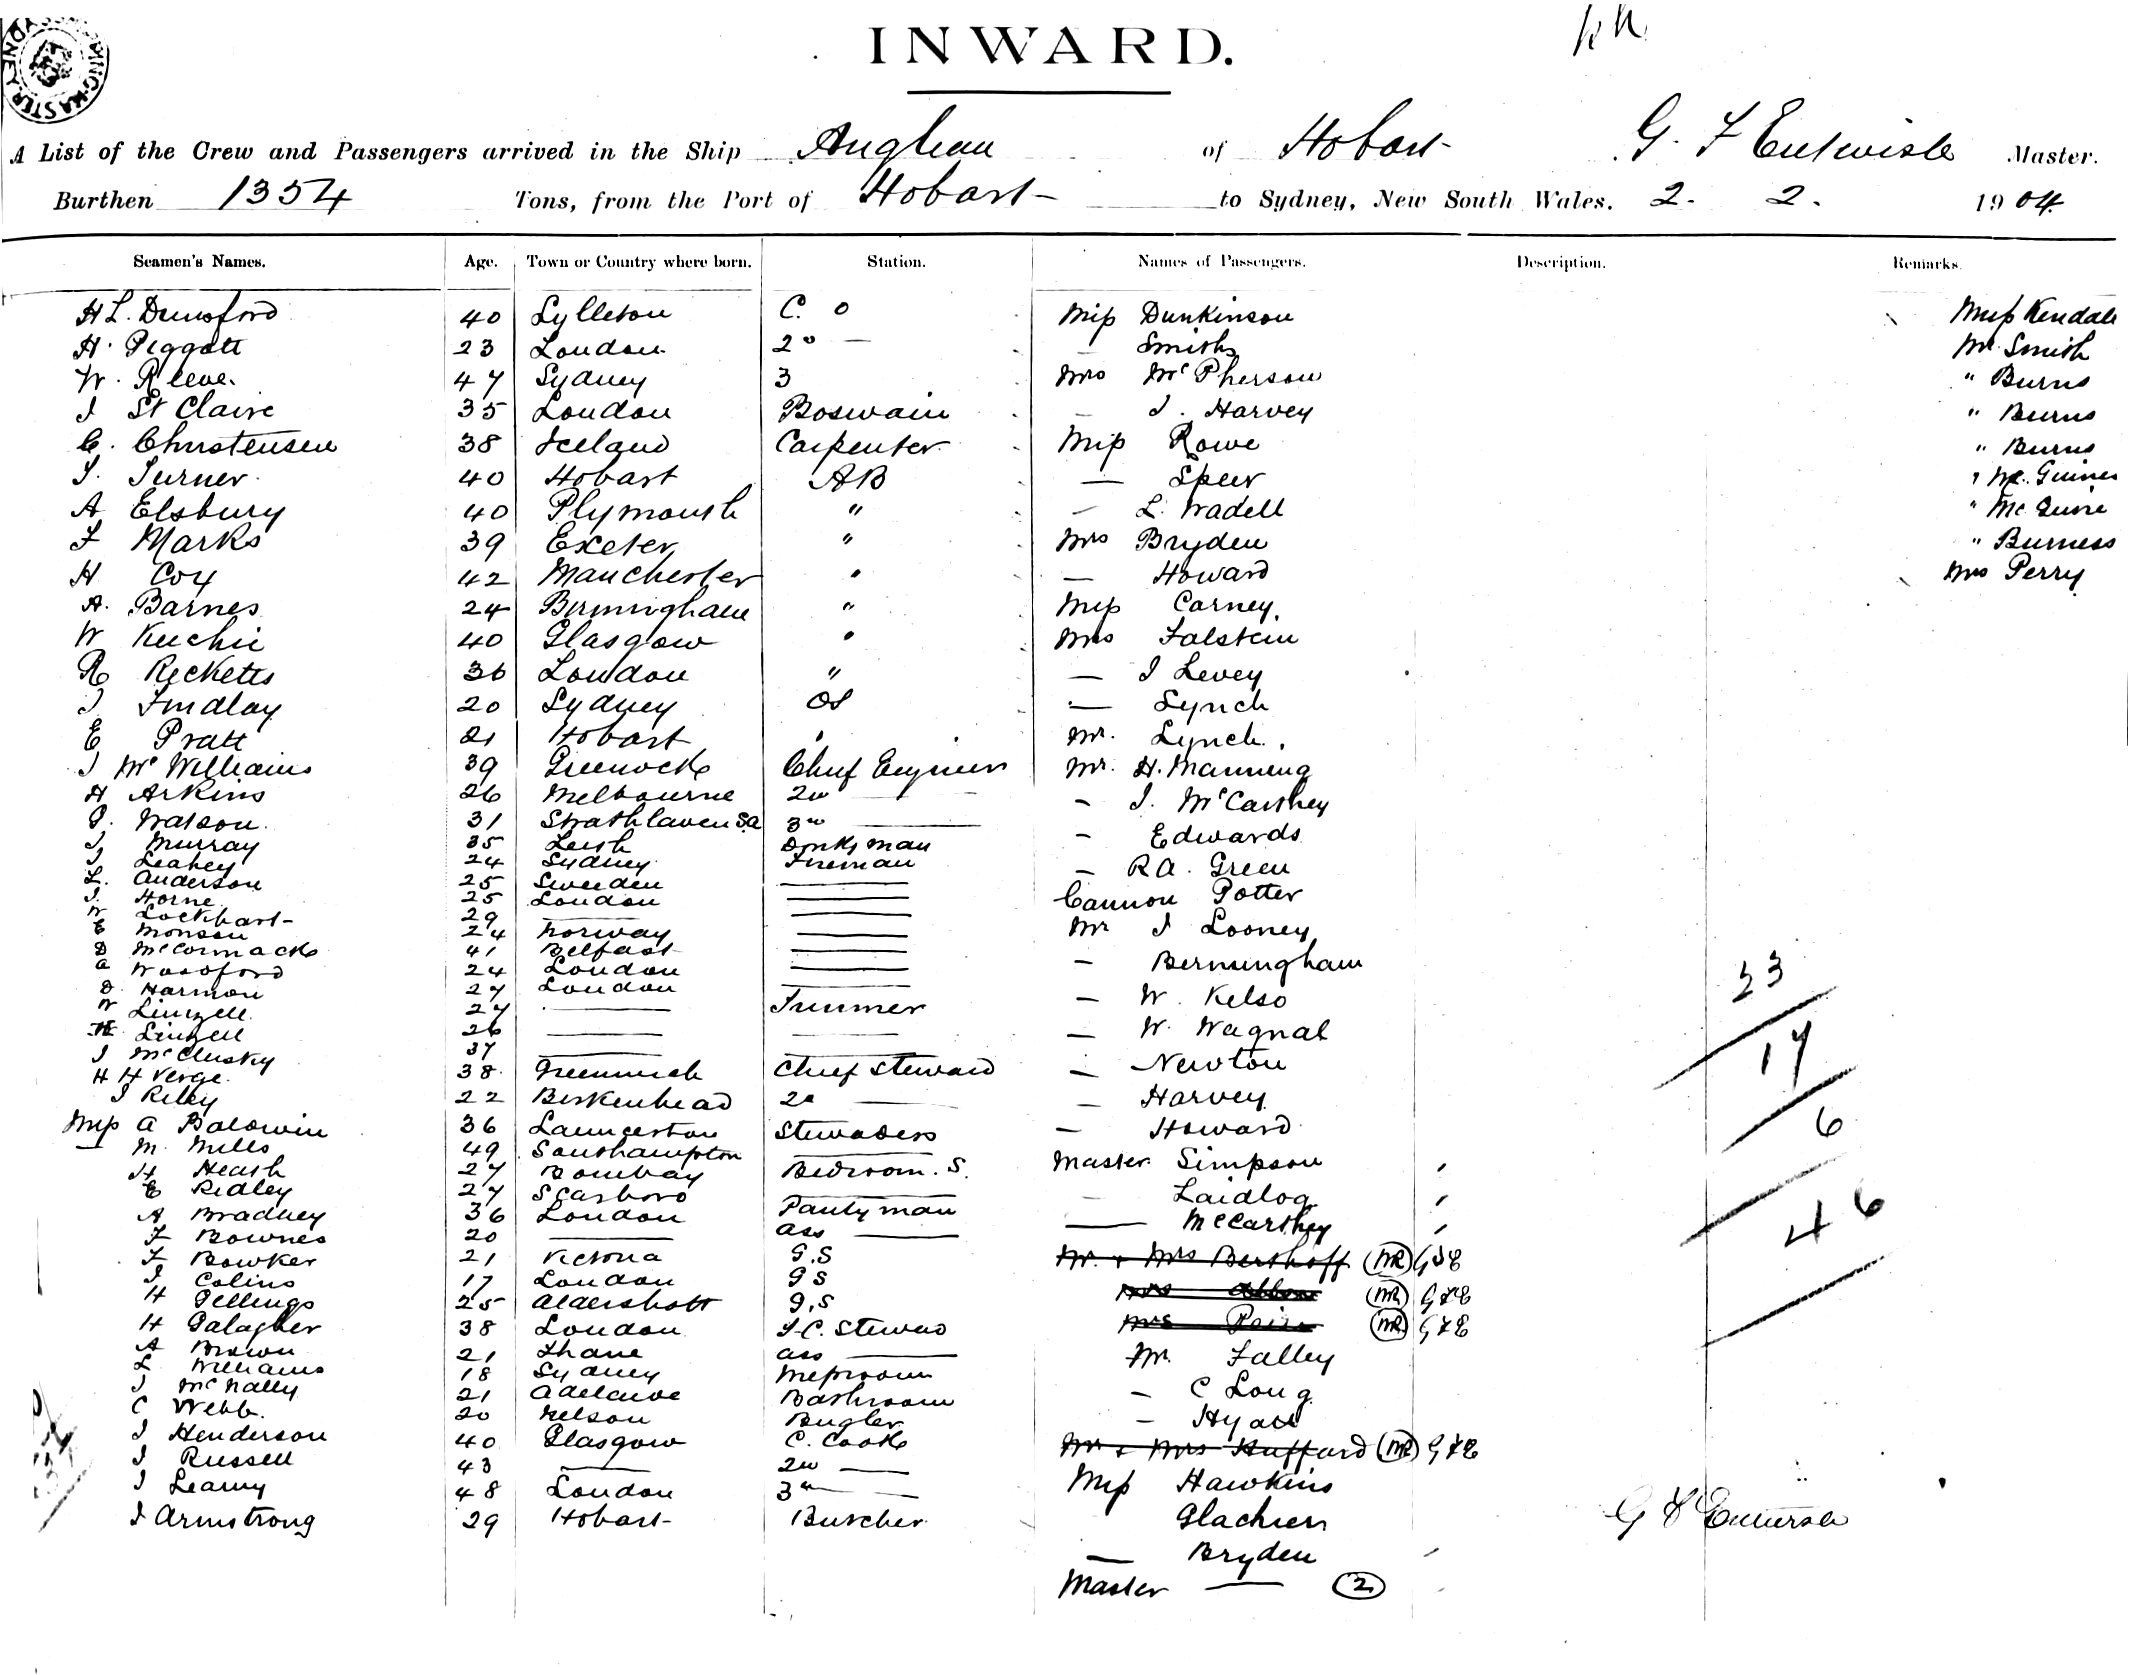 INWARD.
A List of the Crew and Passengers arrived in the Ship Anglian of Hobart G. F Entwisle Master.
Burthen 1354 Tons, from the Port of Hobart to Sydney, New South Wales. 2. 2. 1904
Seamen's Names. Age. Town or Country where born. Station. Names of Passengers. Description. Remarks.
H L. Dunsford 40 Lylleton C. O Miss Dunkinson Miss Kendale
H. Piggott 23 London 2nd — — Smith Mr. Smith
W. Reeve 47 Sydney 3 Mrs McPherson " Burns
J St Claire 35 London Boswain — J. Harvey " Burns
C. Christensen 38 Iceland Carpenter Miss Rowe " Burns
T. Turner 40 Hobart AB — Speer " Mc. Guines
A Elsbury 40 Plymouth " — L. Wadell " McGuire
F Marks 39 Exeter " Mrs Bryden " Burness
H Cox 42 Manchester " — Howard Mrs Perry
A. Barnes 24 Birmingham " Miss Carney
W Kuchie 40 Glasgow " Mrs Falstein
R Ricketts 36 London " — J Levey
J Findlay 20 Sydney OS — Lynch
E Pratt 21 Hobart " Mr. Lynch
J McWilliams 39 Greenock Chief Engineer Mr. H. Manning
H Arkins 26 Melbourne 2nd — — J. McCarthey
J. Watson 31 Strathlaven SA 3rd — — Edwards
J Murray 35 Leith Donkyman — R A. Green
J Leahey 24 Sydney Fireman
L. Anderson 25 Sweeden — Cannon Potter
J. Horne 25 London —
W Lockhart 29 — — Mr J Looney
E Monson 24 Norway —
D McCormack 41 Belfast — — Bermingham
A Woodford 24 London —
D. Harmon 27 London — W. Kelso
W Linzell 27 — Trimmer
H Linzell 26 — — — W. Wagnal
J McClusky 37 — — — Newton
H H Verge 38 Greenwich Chief Steward
J Riley 22 Birkenhead 2nd — — Harvey
Miss A Baldwin 36 Launceston Stewardess — Howard
— M. Mills 49 Southampton —
H Heath 27 Bombay Bedroom. S. Master Simpson
E Ridley 27 Scarboro — — Laidlog
A Bradney 36 London Pantryman — McCarthey
F Bownes 20 — ass —
F Bowker 21 Victoria G.S Mr. & Mrs Berthoff GFE
J Colins 17 London G S
H Pellings 25 Aldershott G.S Mrs GFE
H Galagher 38 London S.C. Steward Mrs GFE
A Brown 21 Thane ass — Mr. Falley
L Williams 18 Sydney Messroom
J McNally 21 Adelaide Bathroom — C Long
C Webb. 20 Nelson Bugler — Hyatt
J Henderson 40 Glasgow C. Cook Mr & Mrs Hufford GFE
J Russell 43 — 2nd —
J Leamy 48 London 3rd — Miss Hawkins
J Armstrong 29 Hobart Butcher Glachien
— Bryden
Master — 2
23
17
6
46
G F Entwisle